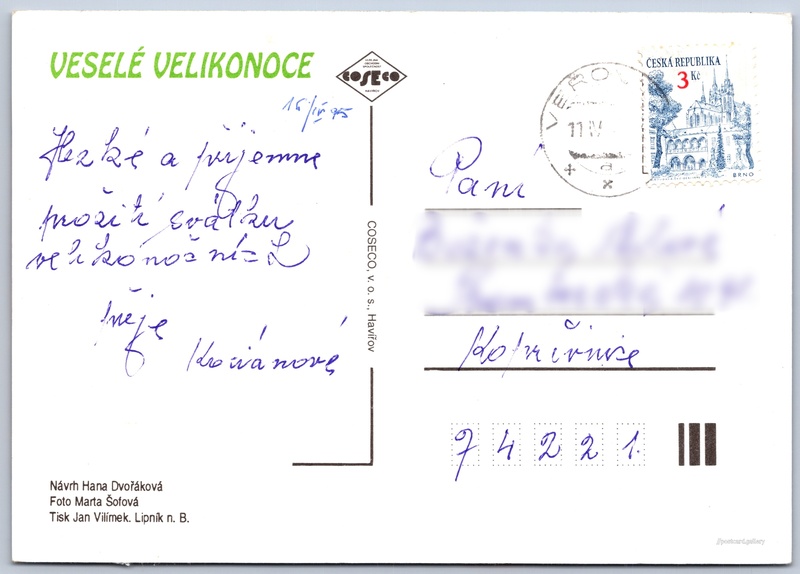 VESELÉ VELIKONOCE
COSECO
HAVÍŘOV
16/IV 95
Hezké a příjemne
prožití svátku
velikonočních
přeje
Kociánová
COSECO, v. o. s., Havířov
Návrh Hana Dvořáková
Foto Marta Šofová
Tisk Jan Vilímek. Lipník n. B.
ČESKÁ REPUBLIKA
3 Kč
BRNO
VEŘOV
11.IV.
a
Paní
Kopřivnice
74221